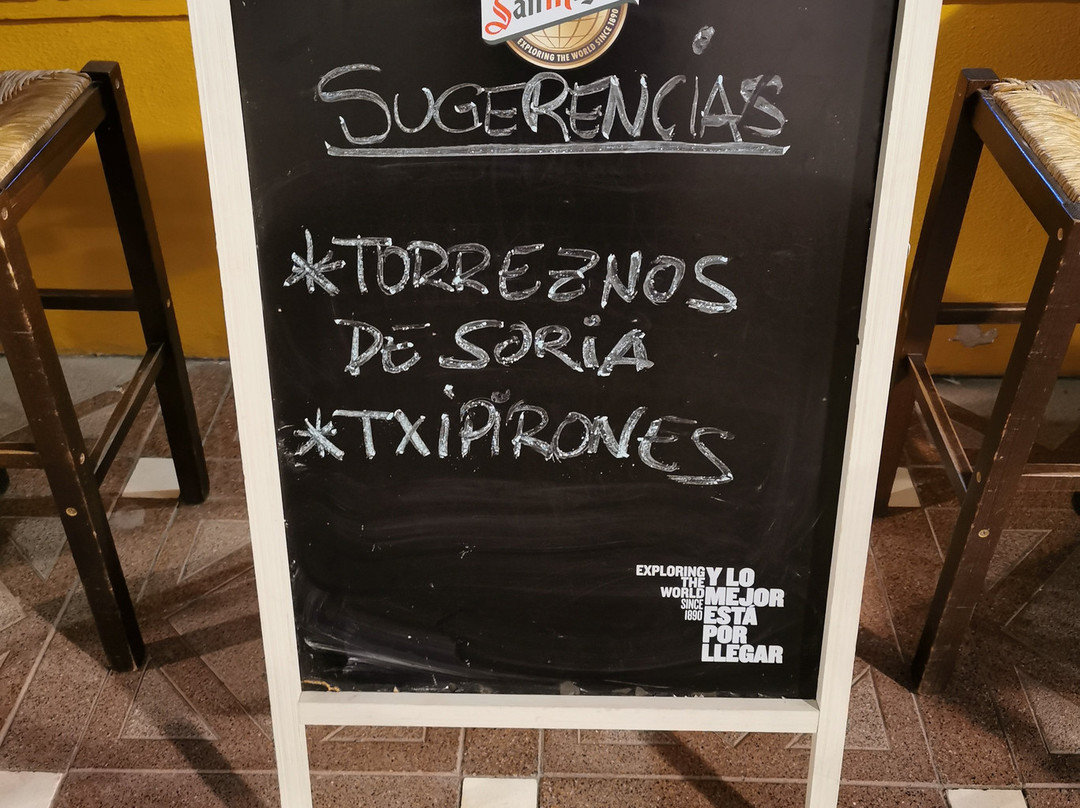 San
EXPLORING THE WORLD SINCE 1890
SUGERENCIAS
*TORREZNOS
DE SORIA
*TXIPIRONES
EXPLORING
THE
WORLD
SINCE
1890
Y LO
MEJOR
ESTÁ
POR
LLEGAR